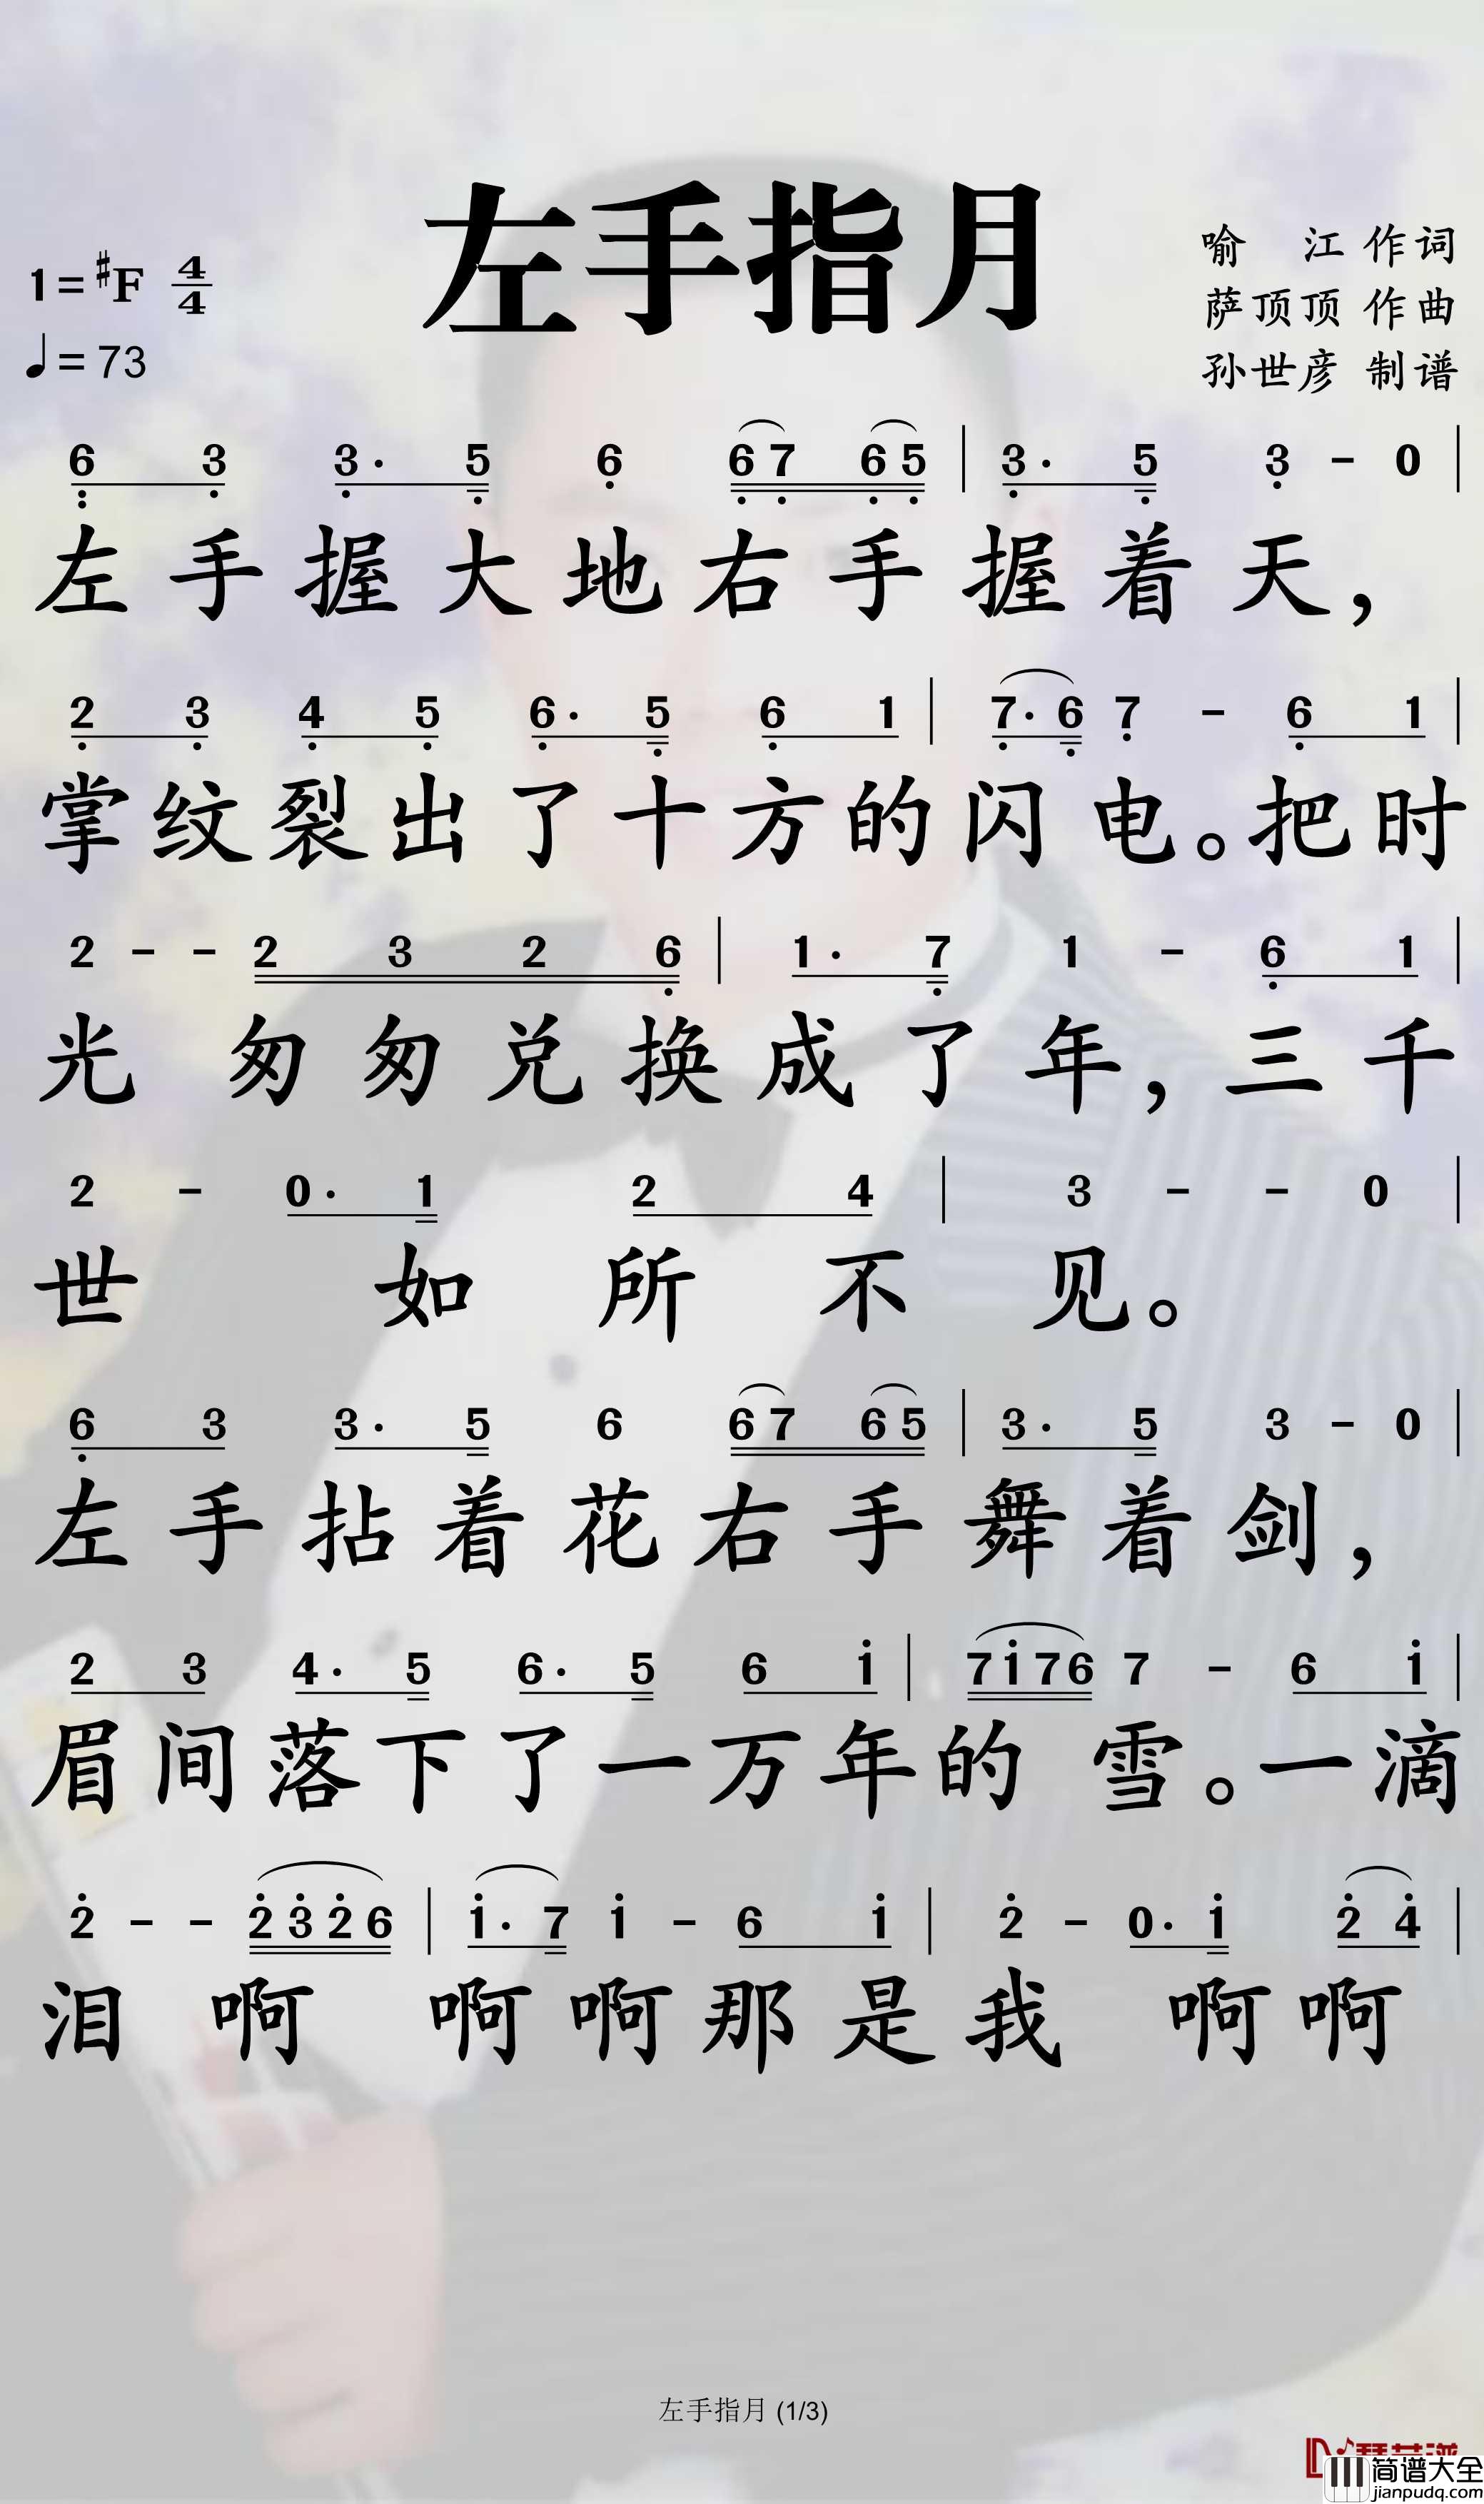 左手指月
1=♯F 4/4
♩=73
喻 江 作词
萨顶顶 作曲
孙世彦 制谱
6 3 3· 5 6 6 7 6 5 | 3· 5 3 - 0 |
左手握大地右手握着天，
2 3 4 5 6· 5 6 1 | 7· 6 7 - 6 1 |
掌纹裂出了十方的闪电。把时
2 - - 2 3 2 6 | 1· 7 1 - 6 1 |
光 匆匆兑换成了年，三千
2 - 0· 1 2 4 | 3 - - 0 |
世 如所不见。
6 3 3· 5 6 6 7 6 5 | 3· 5 3 - 0 |
左手拈着花右手舞着剑，
2 3 4· 5 6· 5 6 i | 7 i 7 6 7 - 6 i |
眉间落下了一万年的雪。一滴
2 - - 2 3 2 6 | i· 7 i - 6 i | 2 - 0· i 2 4 |
泪 啊 啊啊那是我 啊啊
左手指月 (1/3)
简谱大全
jianpudq.com